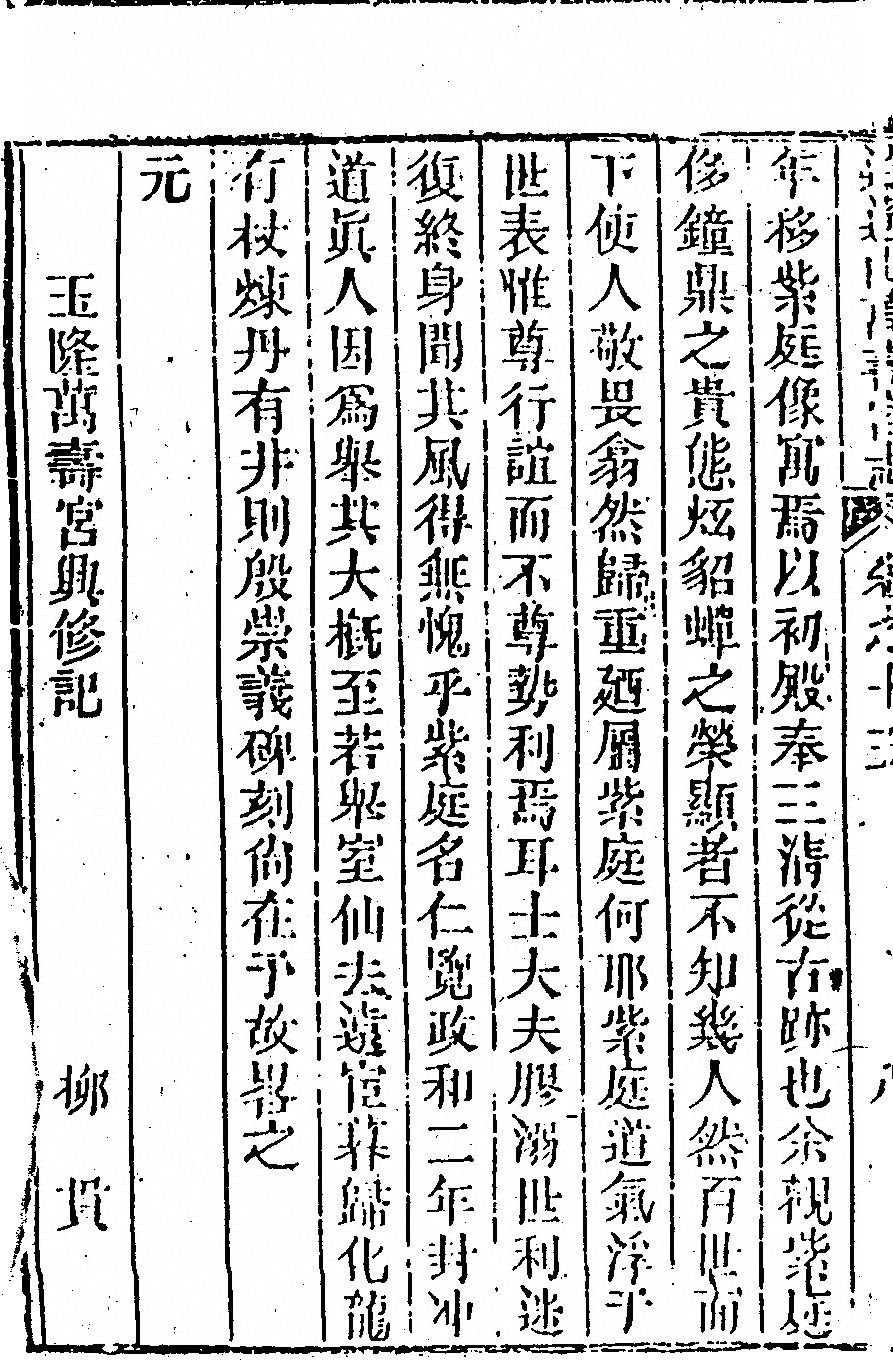 年移紫庭像寘焉以初殿奉三清從古跡也余觀紫庭
侈鐘鼎之貴態炫貂蟬之榮顯者不知幾人然百世而
下使人敬畏翕然歸重廼屬紫庭何耶紫庭道氣浮于
世表惟尊行誼而不尊勢利焉耳士大夫膠溺世利迷
復終身聞其風得無愧乎紫庭名仁覽政和二年封冲
道眞人因爲舉其大槪至若舉室仙去遠宦暮歸化龍
有杖煉丹有井則殷崇義碑刻尚在予故畧之
元
玉隆萬壽宮興修記 柳貫